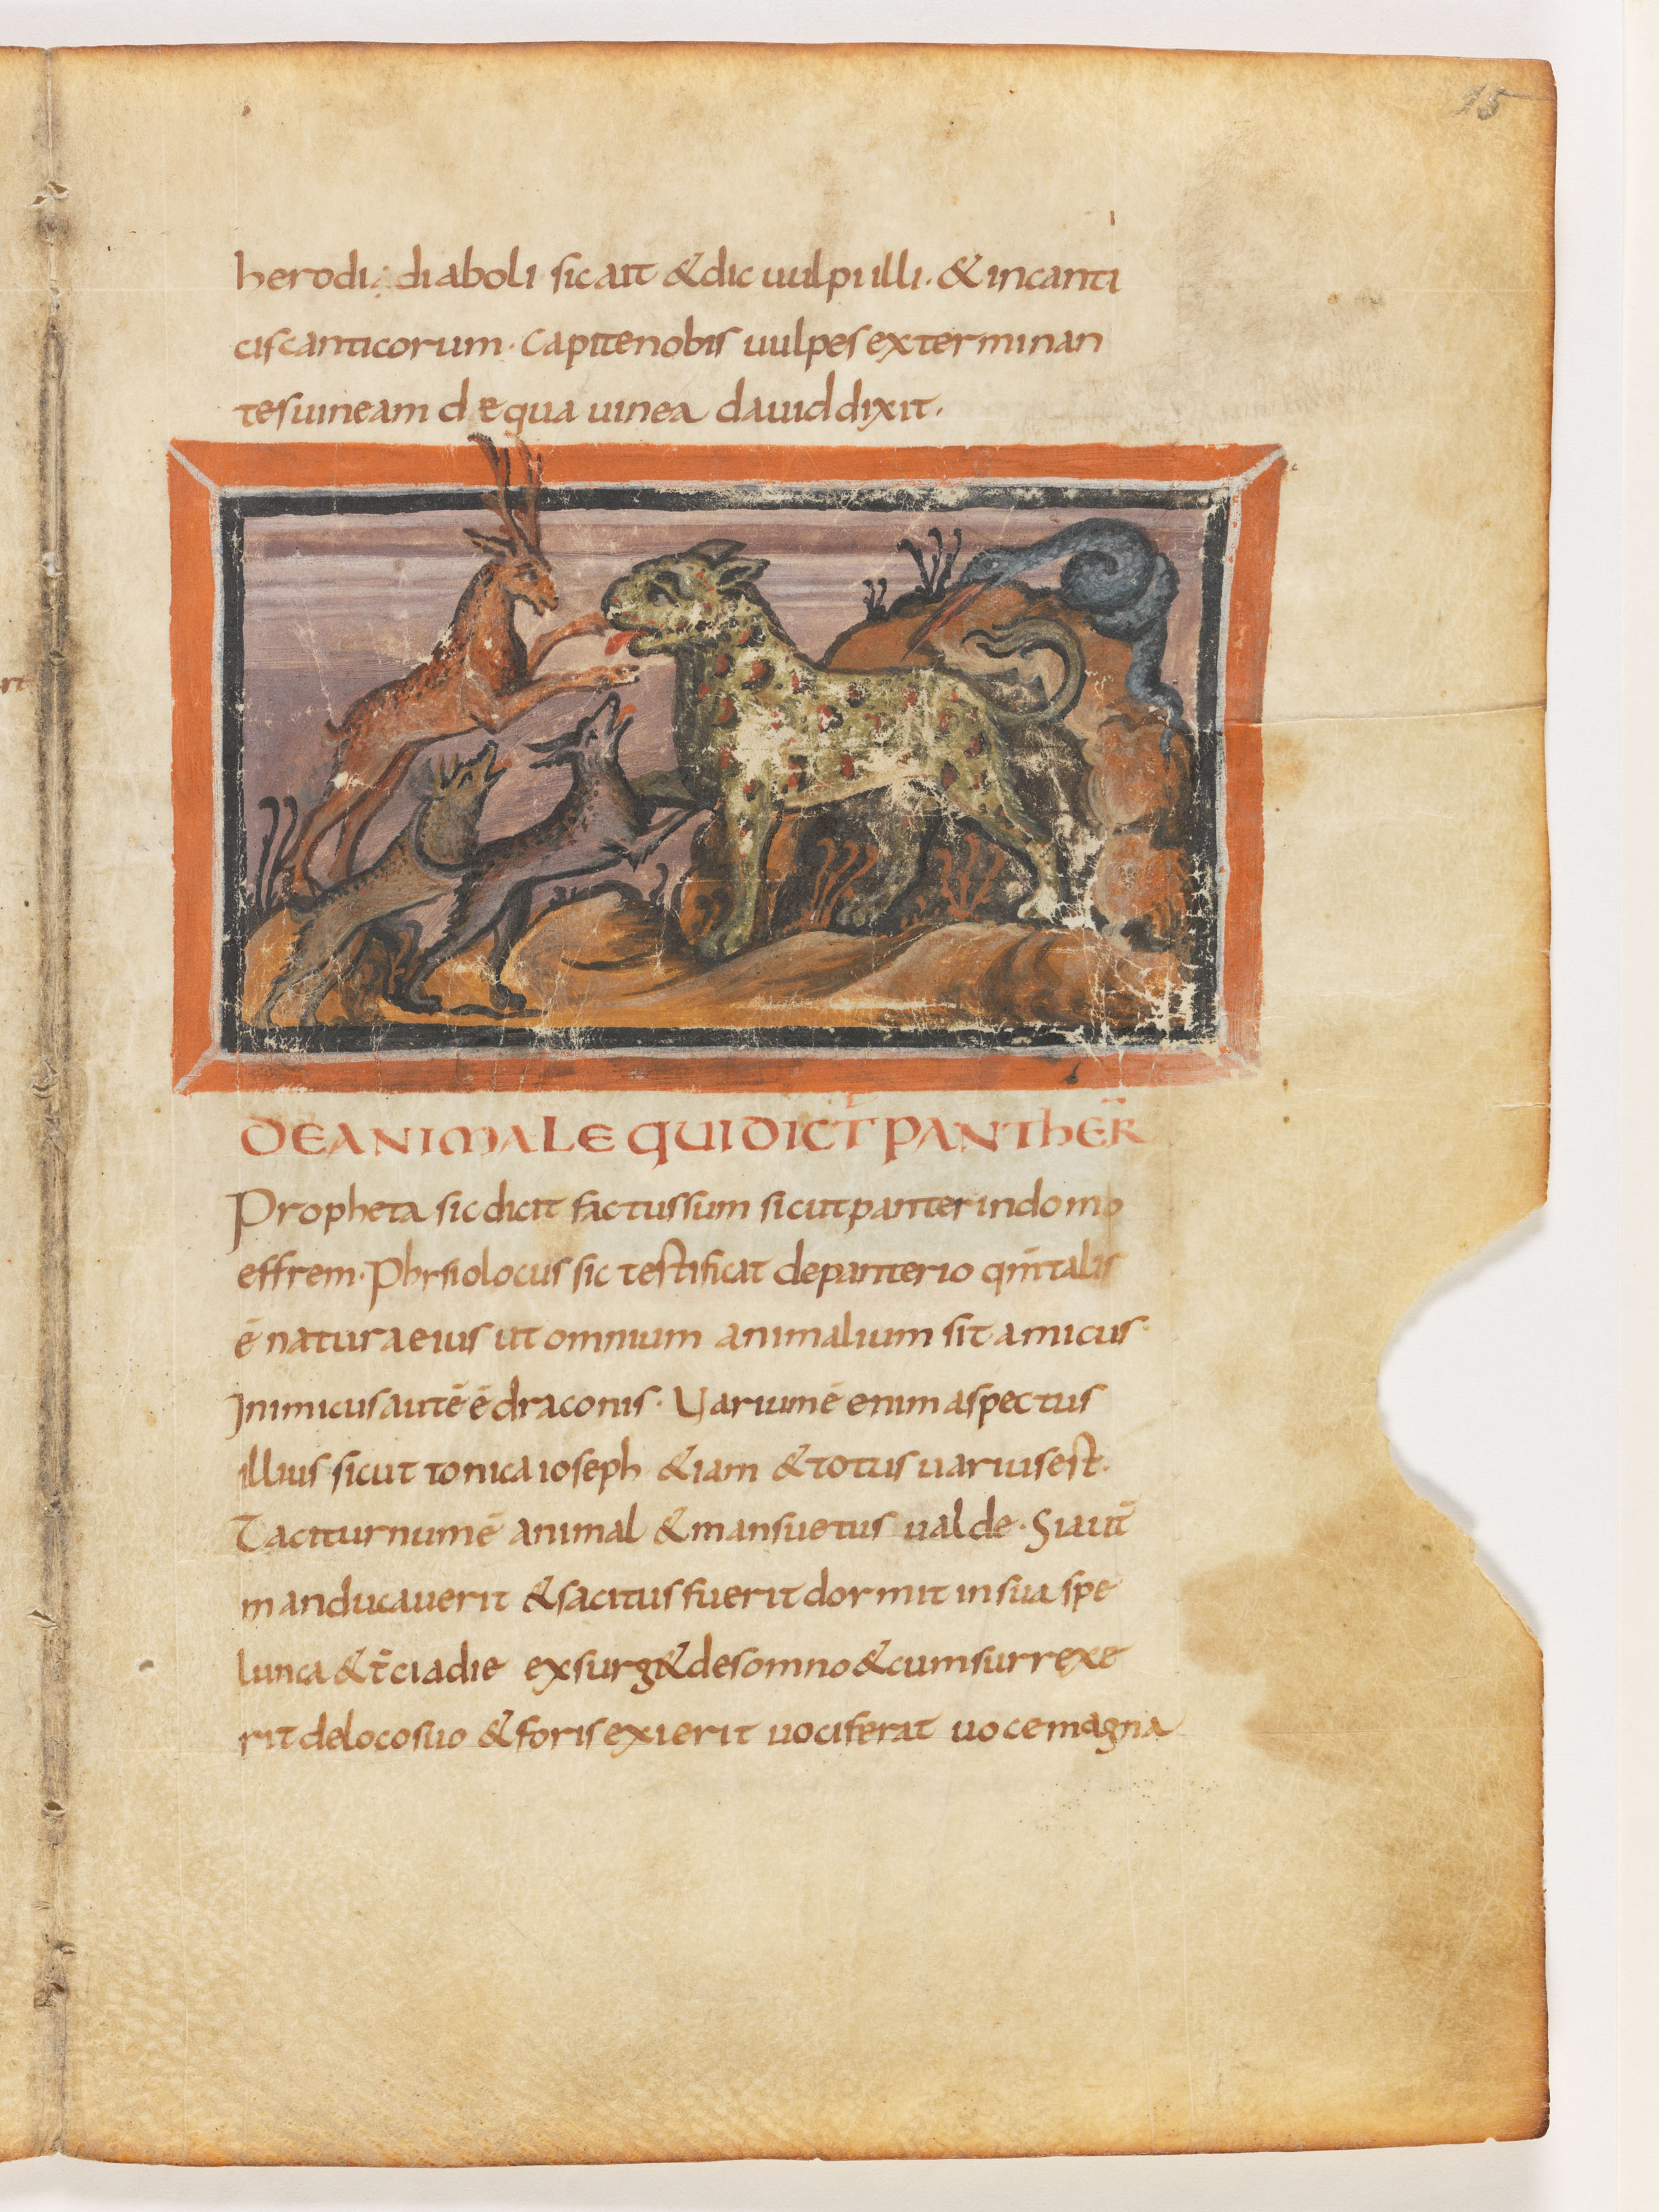 15
herodi; diaboli sic ait & dic uulpi illi · & in canti
cis canticorum · Capite nobis uulpes exterminan
tes uineam de qua uinea dauid dixit ·
DE ANIMALE QUI DICT̄ PANTHER̄
Propheta sic dicit factus sum sicut panter in domo
effrem · Phisiolocus sic testificat de panterio qm̄ talis
ē natura eius ut omnium animalium sit amicus ·
Inimicus autē ē draconis · Uarium ē enim aspectus
illius sicut tonica ioseph & iam & totus uarius est ·
Taciturnum ē animal & mansuetus ualde · Si aut̄
manducauerit & sacitus fuerit dormit in sua spe
lunca & t̄cia die exsurg& de somno & cum surrexe
rit de loco suo & foris exierit uociferat uoce magna